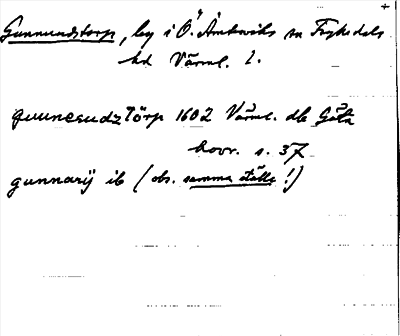 Gunnundstorp, by i Ö. Ämterviks sn Fryksdals
hd Värml. l.
gunnesudztörp 1602 Värml. db Göta
hovr. s. 37
gunnarij ib (obs. samma ställe!)